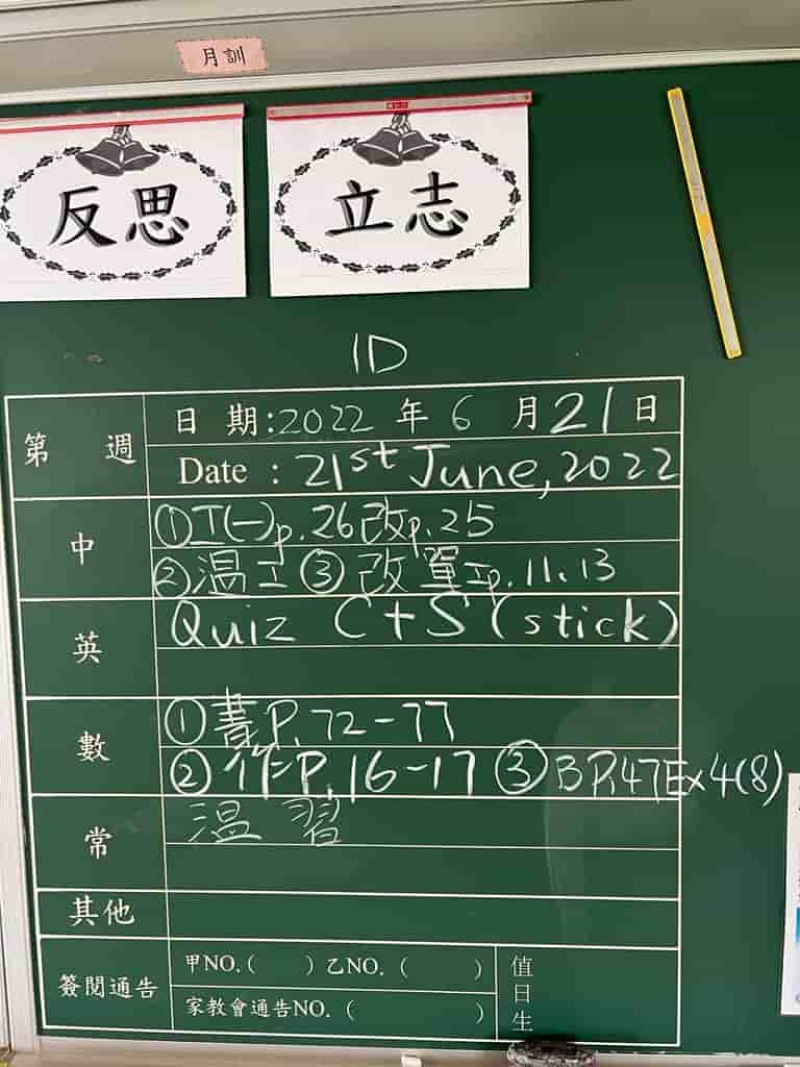 月訓
反思
立志
1D
第 週
日 期:2022 年 6 月 21 日
Date : 21st June, 2022
中
①工(一)p.26改p.25
②温工③改單工p.11、13
英
Quiz C+S(stick)
數
①書P.72-77
②作P.16-17 ③BP.47Ex4(8)
常
温習
其他
簽閱通告
甲NO.( ) 乙NO. ( )
家教會通告NO. ( )
值日生